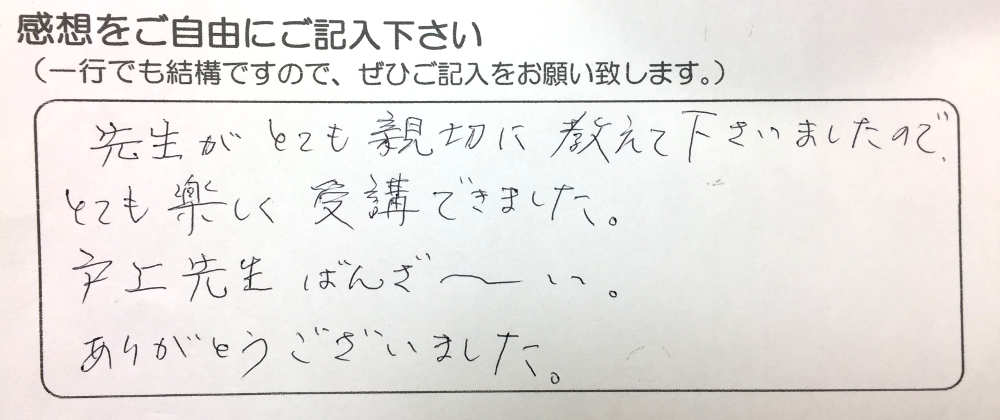 感想をご自由にご記入下さい
(一行でも結構ですので、ぜひご記入をお願い致します。)
先生がとても親切に教えて下さいましたので、
とても楽しく受講できました。
戸上先生ばんざ〜い。
ありがとうございました。